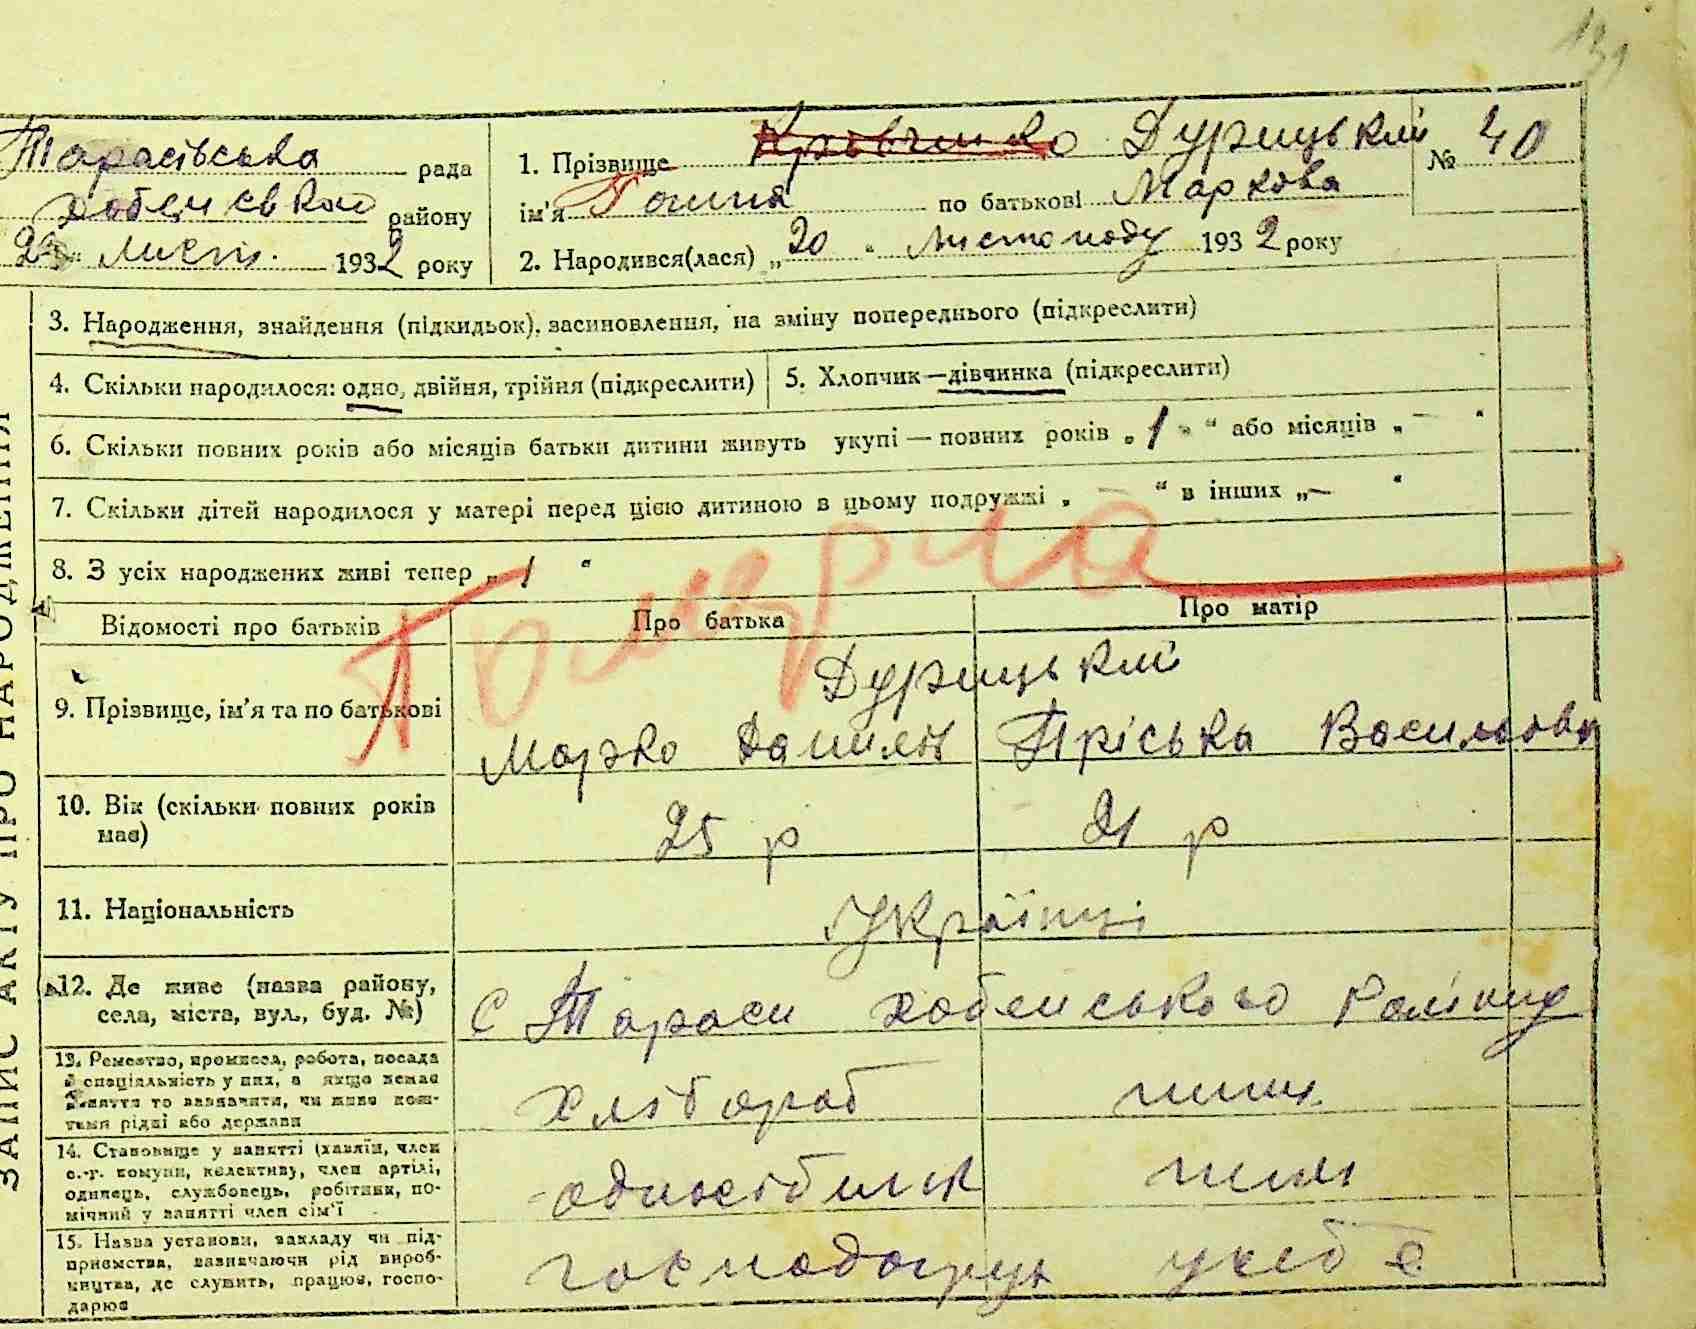 131
Тарасівська рада
хабенського району
лист. 1932 року
1. Прізвище Кравченко Дурицькі № 40
ім'я Ганна по батькові Маркова
2. Народився(лася) „20" Листопаду 1932 року
ЗАПИС АКТУ ПРО НАРОДЖЕННЯ
3. Народження, знайдення (підкидьок), засиновлення, на зміну попереднього (підкреслити)
4. Скільки народилося: одно, двійня, трійня (підкреслити) 5. Хлопчик—дівчинка (підкреслити)
6. Скільки повних років або місяців батьки дитини живуть укупі — повних років „1" або місяців „—"
7. Скільки дітей народилося у матері перед цією дитиною в цьому подружжі „—" в інших „—"
8. З усіх народжених живі тепер „1"
Померла
Відомості про батьків Про батька Про матір
9. Прізвище, ім'я та по батькові Дурицькі
Марко Данилів Пріська Васильова
10. Вік (скільки повних років має) 25 р 21 р
11. Національність Українці
12. Де живе (назва району, села, міста, вул., буд. №) с Тараси хабенського району
13. Ремество, промисел, робота, посада й спеціяльність у них, а якщо немає заняття то зазначити, чи живе коштами рідні або держави
хлібороб
14. Становище у занятті (хазяїн, член с.-г. комуни, колективу, член артілі, одинець, службовець, робітник, помічний у занятті член сім'ї
одноосібник
15. Назва установи, закладу чи підприємства, зазначаючи рід виробництва, де служить, працює, господарює
господарує у себе